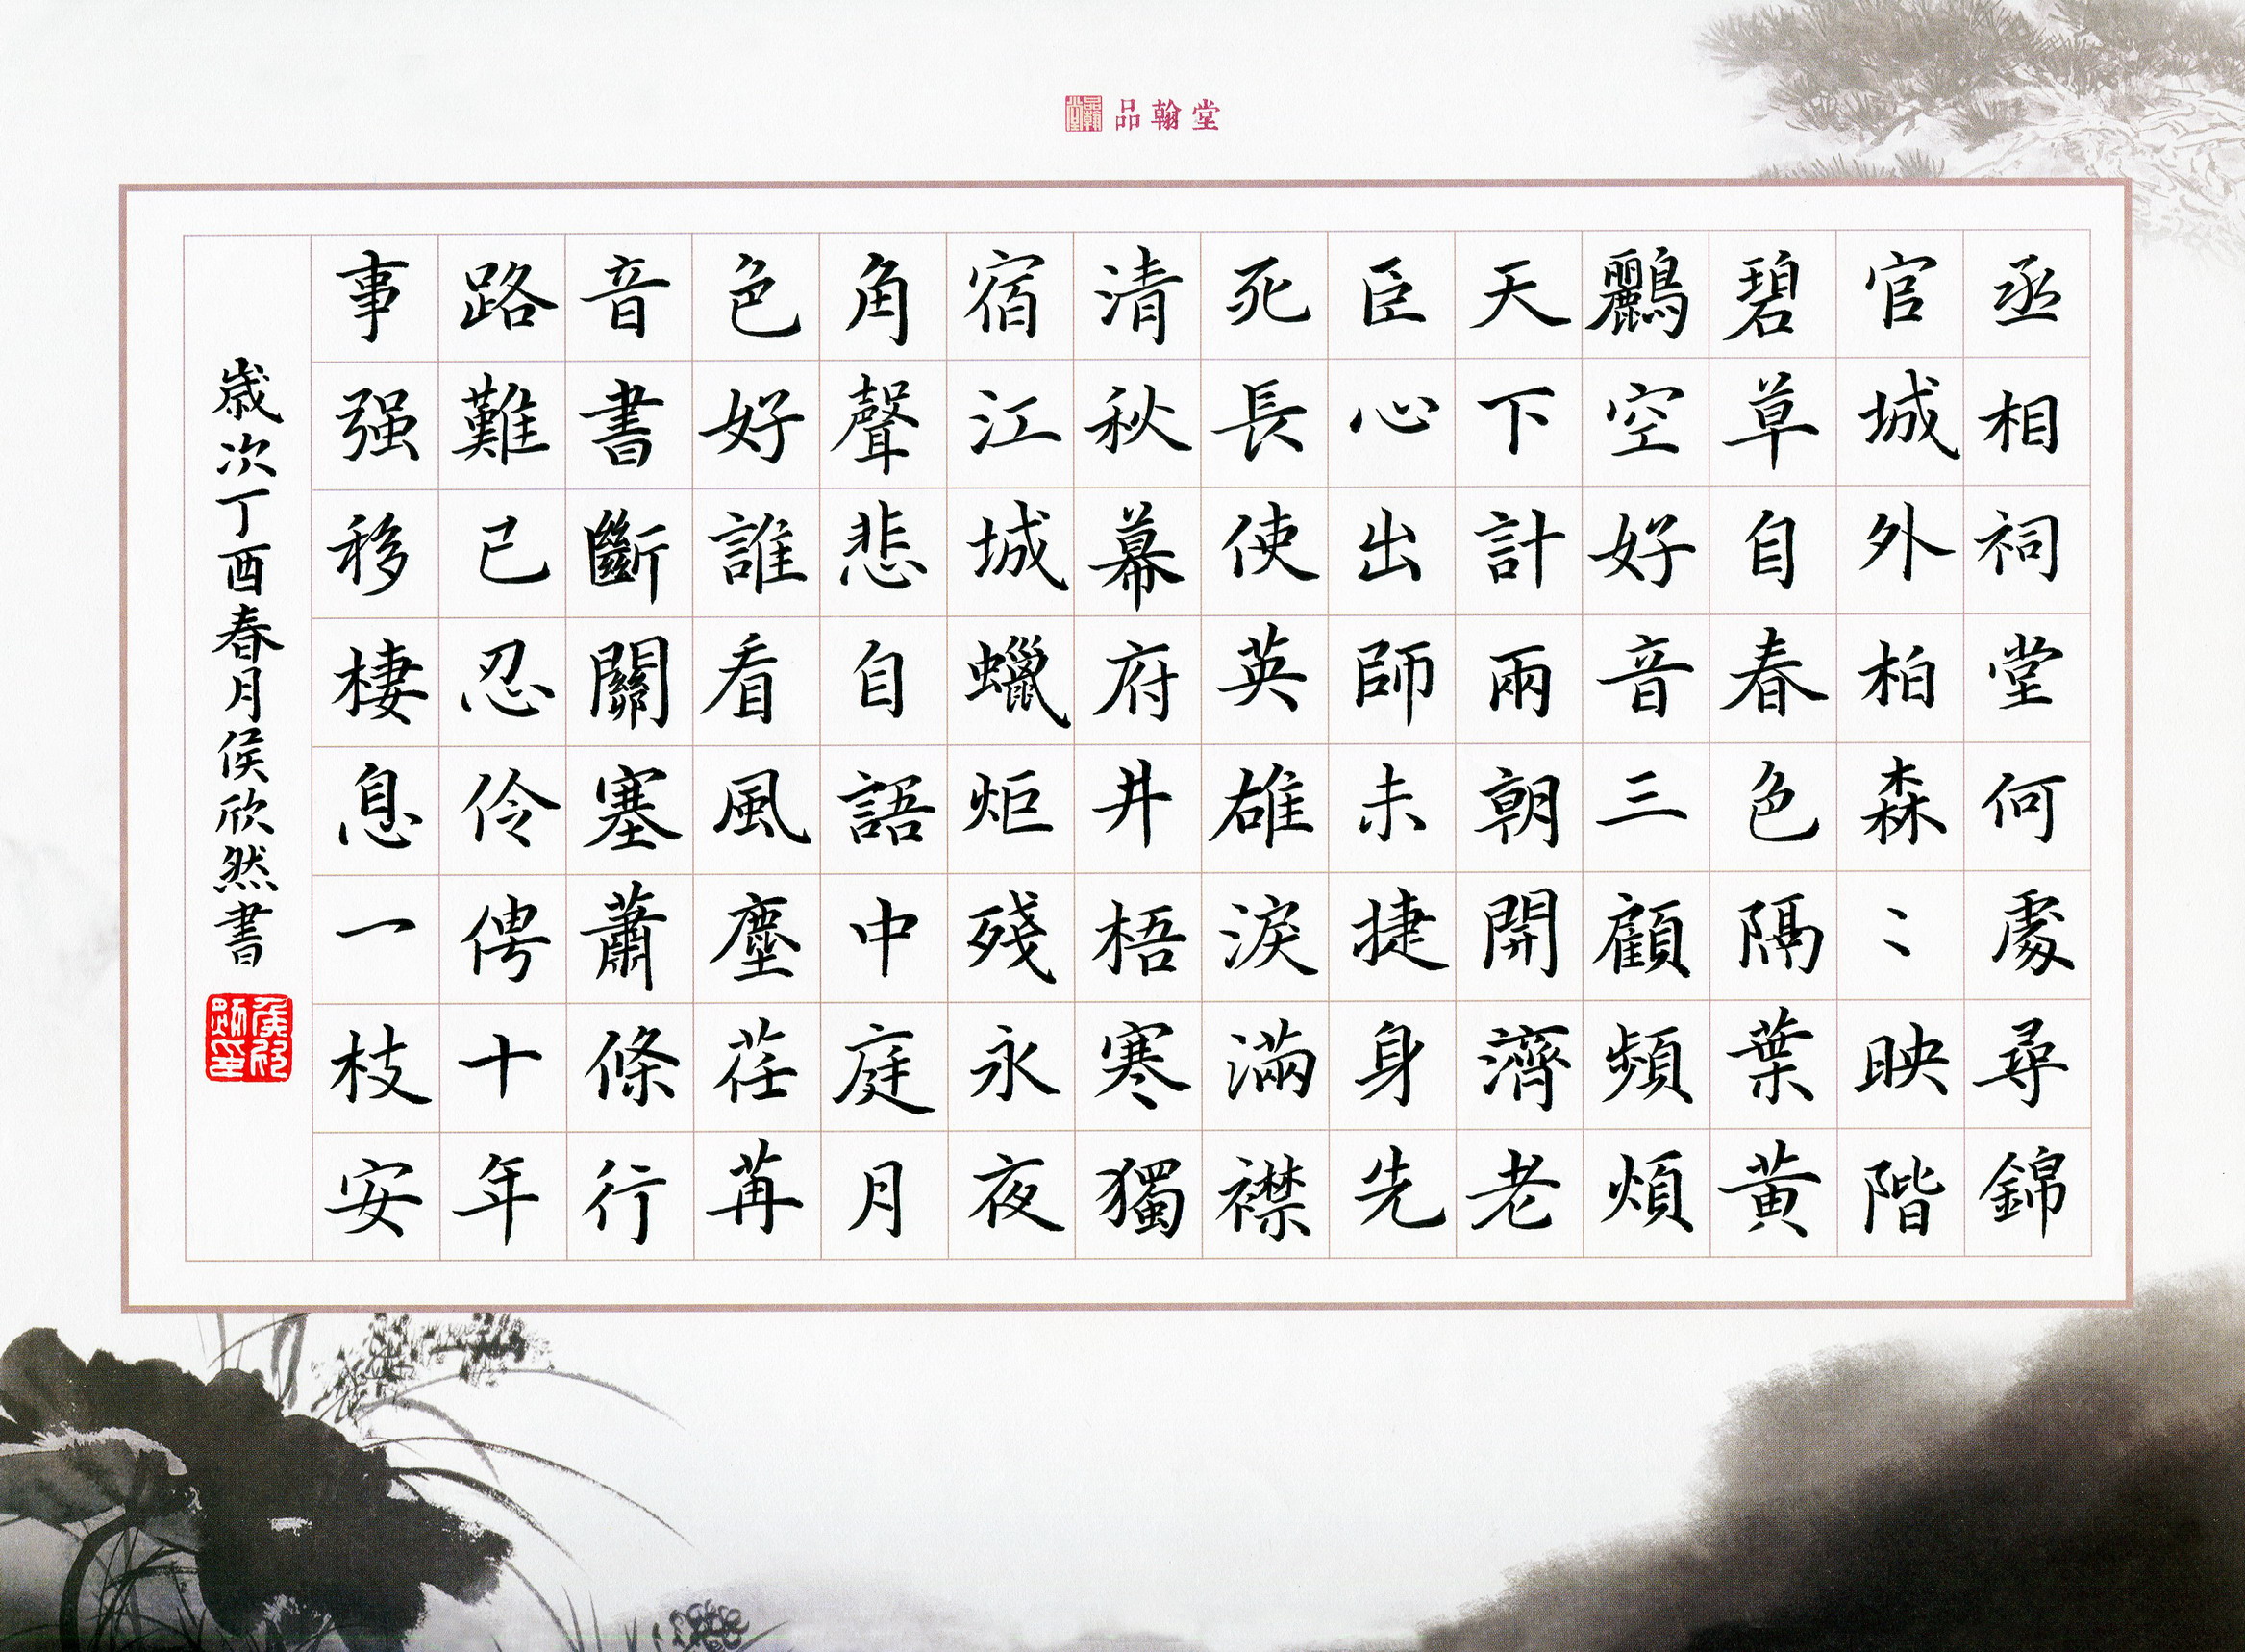 品翰堂
品翰堂
丞相祠堂何處尋錦
官城外柏森〻映階
碧草自春色隔葉黄
鸝空好音三顧頻煩
天下計兩朝開濟老
臣心出師未捷身先
死長使英雄淚滿襟
清秋幕府井梧寒獨
宿江城蠟炬殘永夜
角聲悲自語中庭月
色好誰看風塵荏苒
音書斷關塞蕭條行
路難已忍伶俜十年
事强移棲息一枝安
歲次丁酉春月侯欣然書
侯欣然印